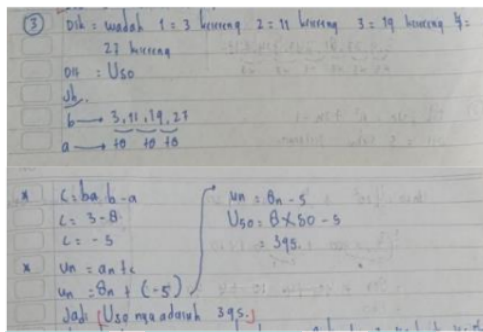 ③ Dik : wadah 1 = 3 kelereng 2 = 11 kelereng 3 = 19 kelereng 4 =
27 kelereng
Dit : U50
Jb.
b → 3, 11, 19, 27
a → +8 +8 +8
* c = b - a
c = 3 - 8
c = - 5
* Un = an + c
Un = 8n + (-5)
Un = 8n - 5
U50 = 8 × 50 - 5
= 395.
Jadi [U50 nya adalah 395.]